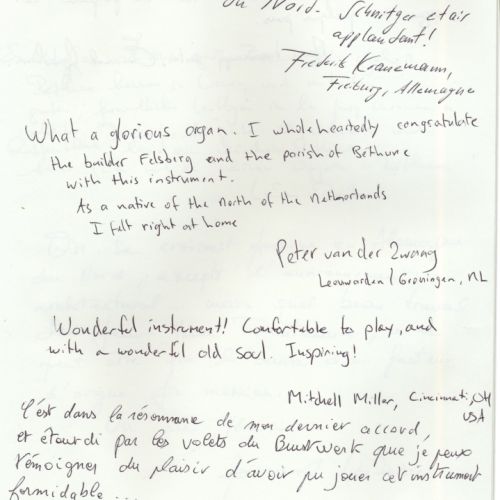 du Nord. Schnitger et air
applaudant!
Frederik Kranemann,
Freiburg, Allemagne
What a glorious organ. I wholeheartedly congratulate
the builder Felsberg and the parish of Béthune
with this instrument.
As a native of the north of the Netherlands
I felt right at home
Peter van der Zwaag
Leeuwarden / Groningen, NL
Wonderful instrument! Comfortable to play, and
with a wonderful old soul. Inspiring!
Mitchell Miller, Cincinnati, OH
USA
C'est dans la résonnance de mon dernier accord,
et étourdi par les volets du Brustwerk que je peux
témoigner du plaisir d'avoir pu jouer cet instrument
formidable ...